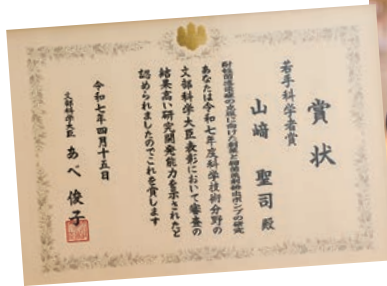 賞状
若手科学者賞
山﨑 聖司 殿
あなたは令和七年度科学技術分野の
文部科学大臣表彰において審査の
結果高い研究開発能力を示されたと
認められましたのでこれを賞します
令和七年四月十五日
文部科学大臣 あべ 俊子